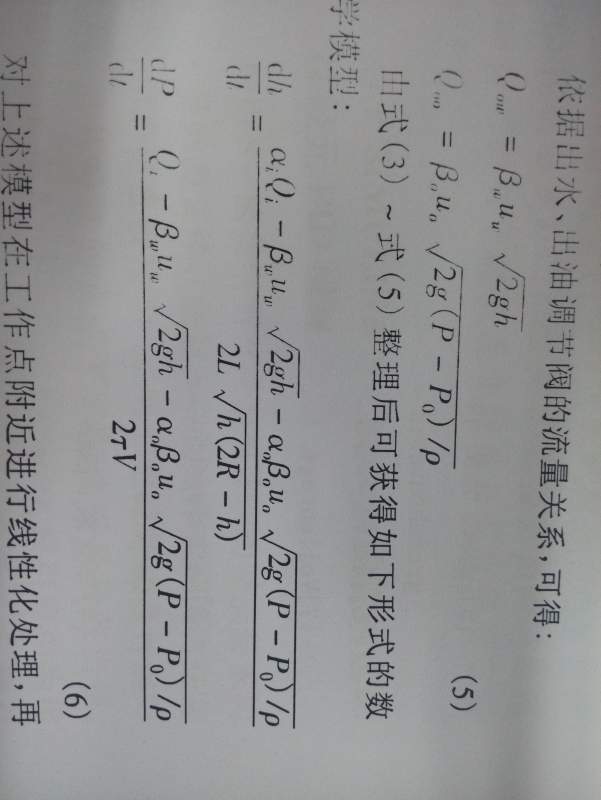 依据出水、出油调节阀的流量关系,可得:
Q_ow = β_w u_w √(2gh)
Q_oo = β_o u_o √(2g(P − P₀)/ρ) (5)
由式(3) ~ 式(5)整理后可获得如下形式的数
学模型:
dh/dt = (α_i Q_i − β_w u_w √(2gh) − α_o β_o u_o √(2g(P − P₀)/ρ)) / (2L √(h(2R − h)))
dP/dt = (Q_i − β_w u_w √(2gh) − α_o β_o u_o √(2g(P − P₀)/ρ)) / (2τV)
(6)
对上述模型在工作点附近进行线性化处理,再